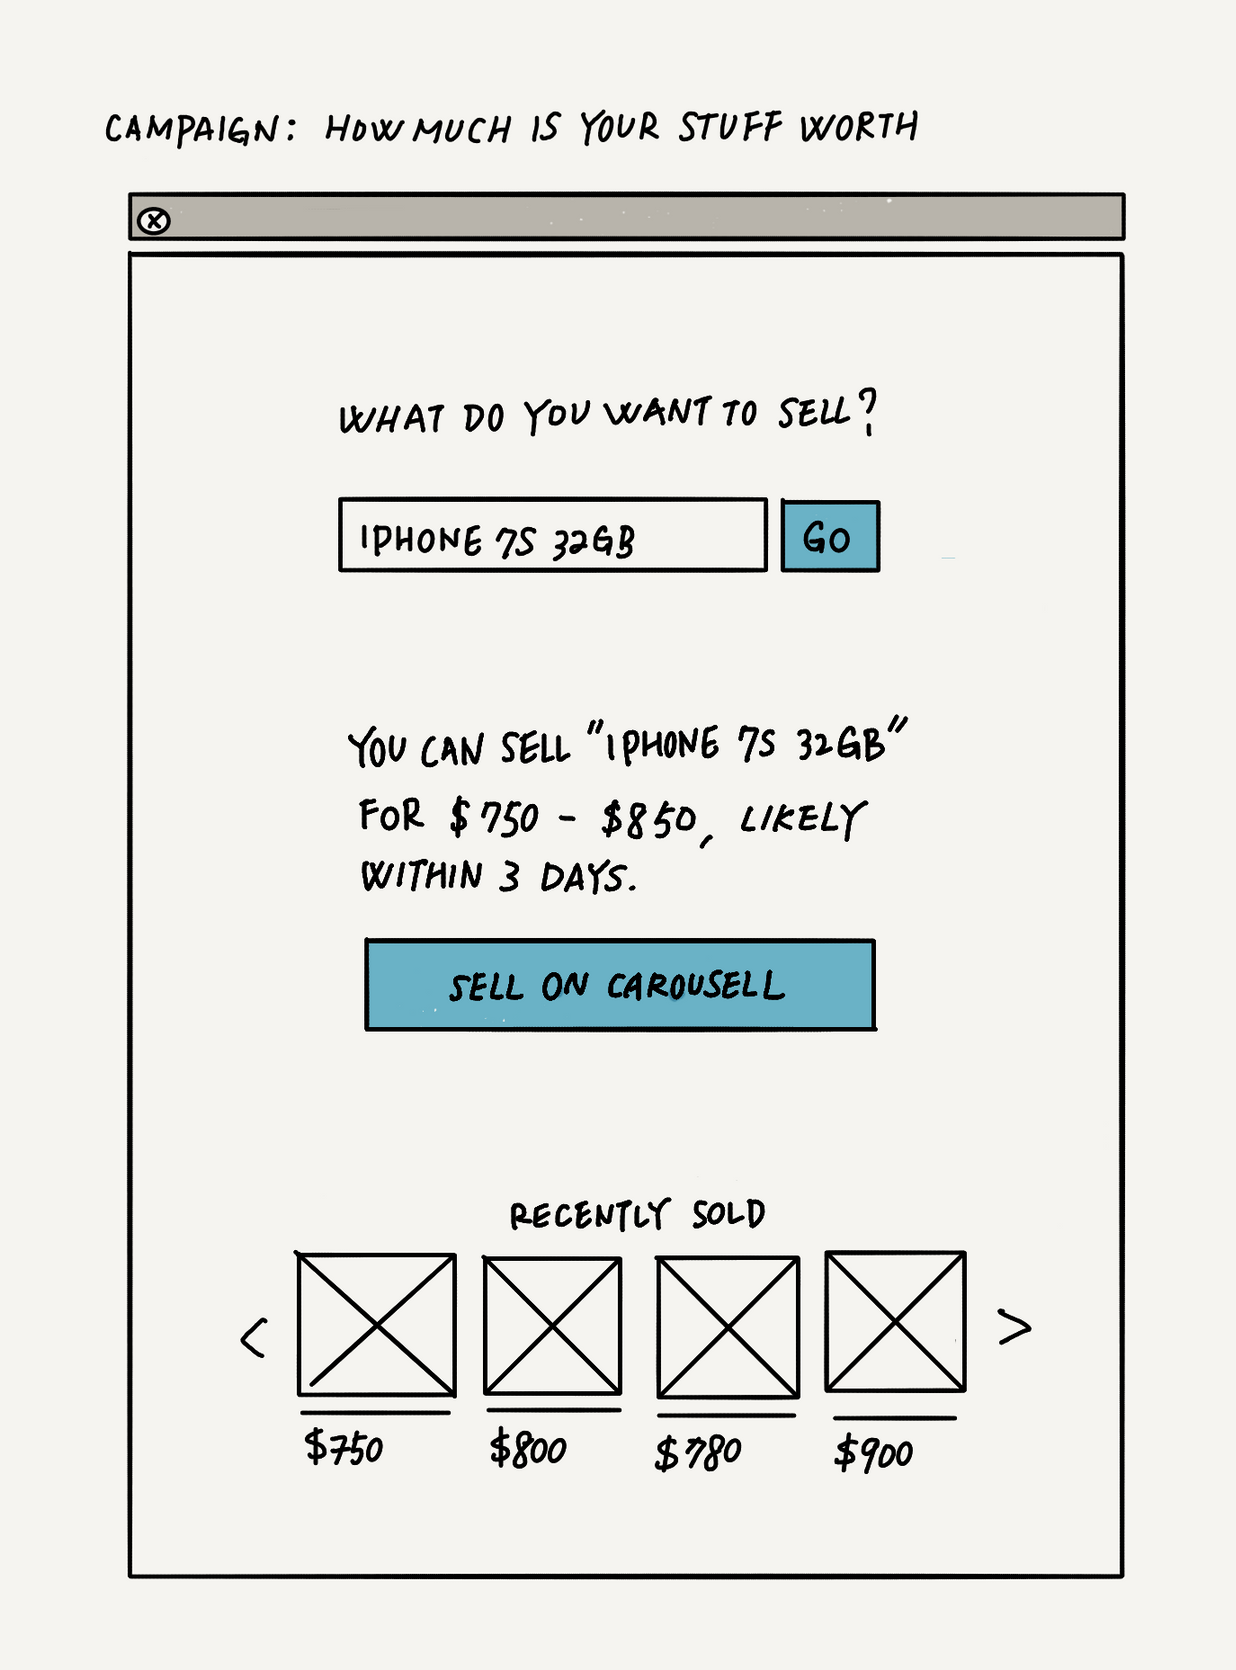 CAMPAIGN: HOW MUCH IS YOUR STUFF WORTH
WHAT DO YOU WANT TO SELL?
IPHONE 7S 32GB
GO
YOU CAN SELL "IPHONE 7S 32GB"
FOR $750 - $850, LIKELY
WITHIN 3 DAYS.
SELL ON CAROUSELL
RECENTLY SOLD
< >
$750 $800 $780 $900